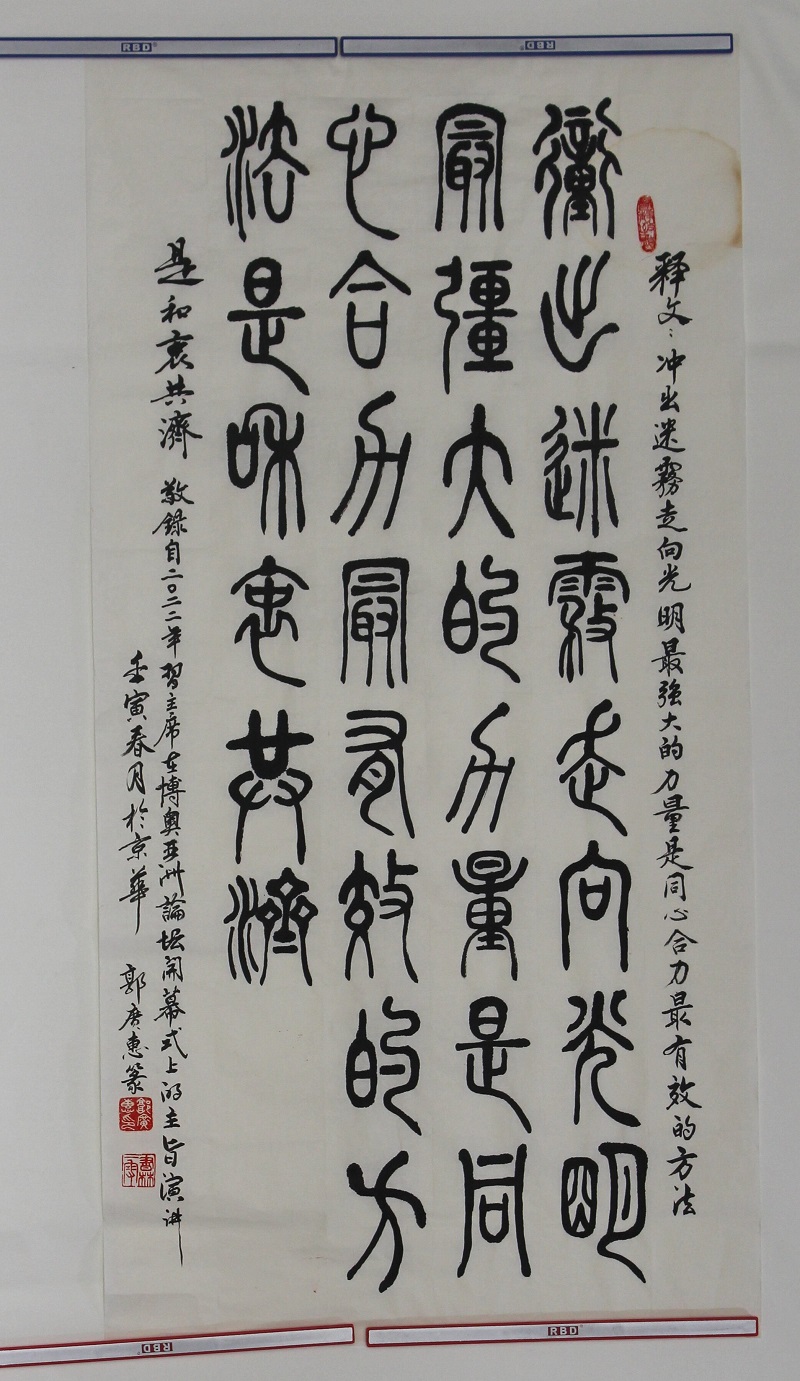 释文：冲出迷霧走向光明最強大的力量是同心合力最有效的方法
衝出迷霧走向光明
最彊大的力量是同
心合力最有效的方
法是和衷共濟
是和衷共濟 敬錄自二〇二二年習主席在博奥亚洲論坛開幕式上的主旨演讲
壬寅春月於京華 郭广惠篆
RBD
RBD
RBD
RBD